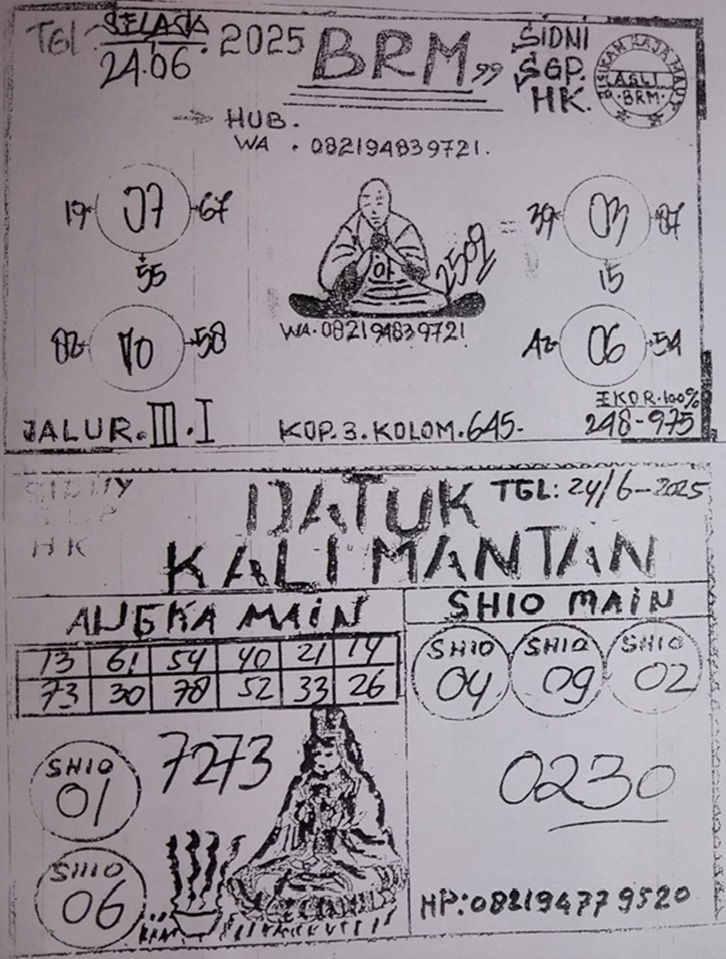 TGL. SELASA 24.06. 2025
BRM,,
SIDNI
SGP.
HK.
ASLI
BRM
HUB.
WA . 082194839721.
19 07 67
55
39 03 87
15
2502
82 10 58
WA. 082194839721
42 06 54
JALUR. III. I
KOP. 3. KOLOM. 645-
EKOR. 100%
248-975
SIDNY
SGP
HK
DATUK
KALIMANTAN
TGL: 24/6-2025
ANGKA MAIN
13 61 54 40 21 14
73 30 78 52 33 26
SHIO MAIN
SHIO 04
SHIO 09
SHIO 02
SHIO 01
7273
0230
SHIO 06
HP: 082194779520